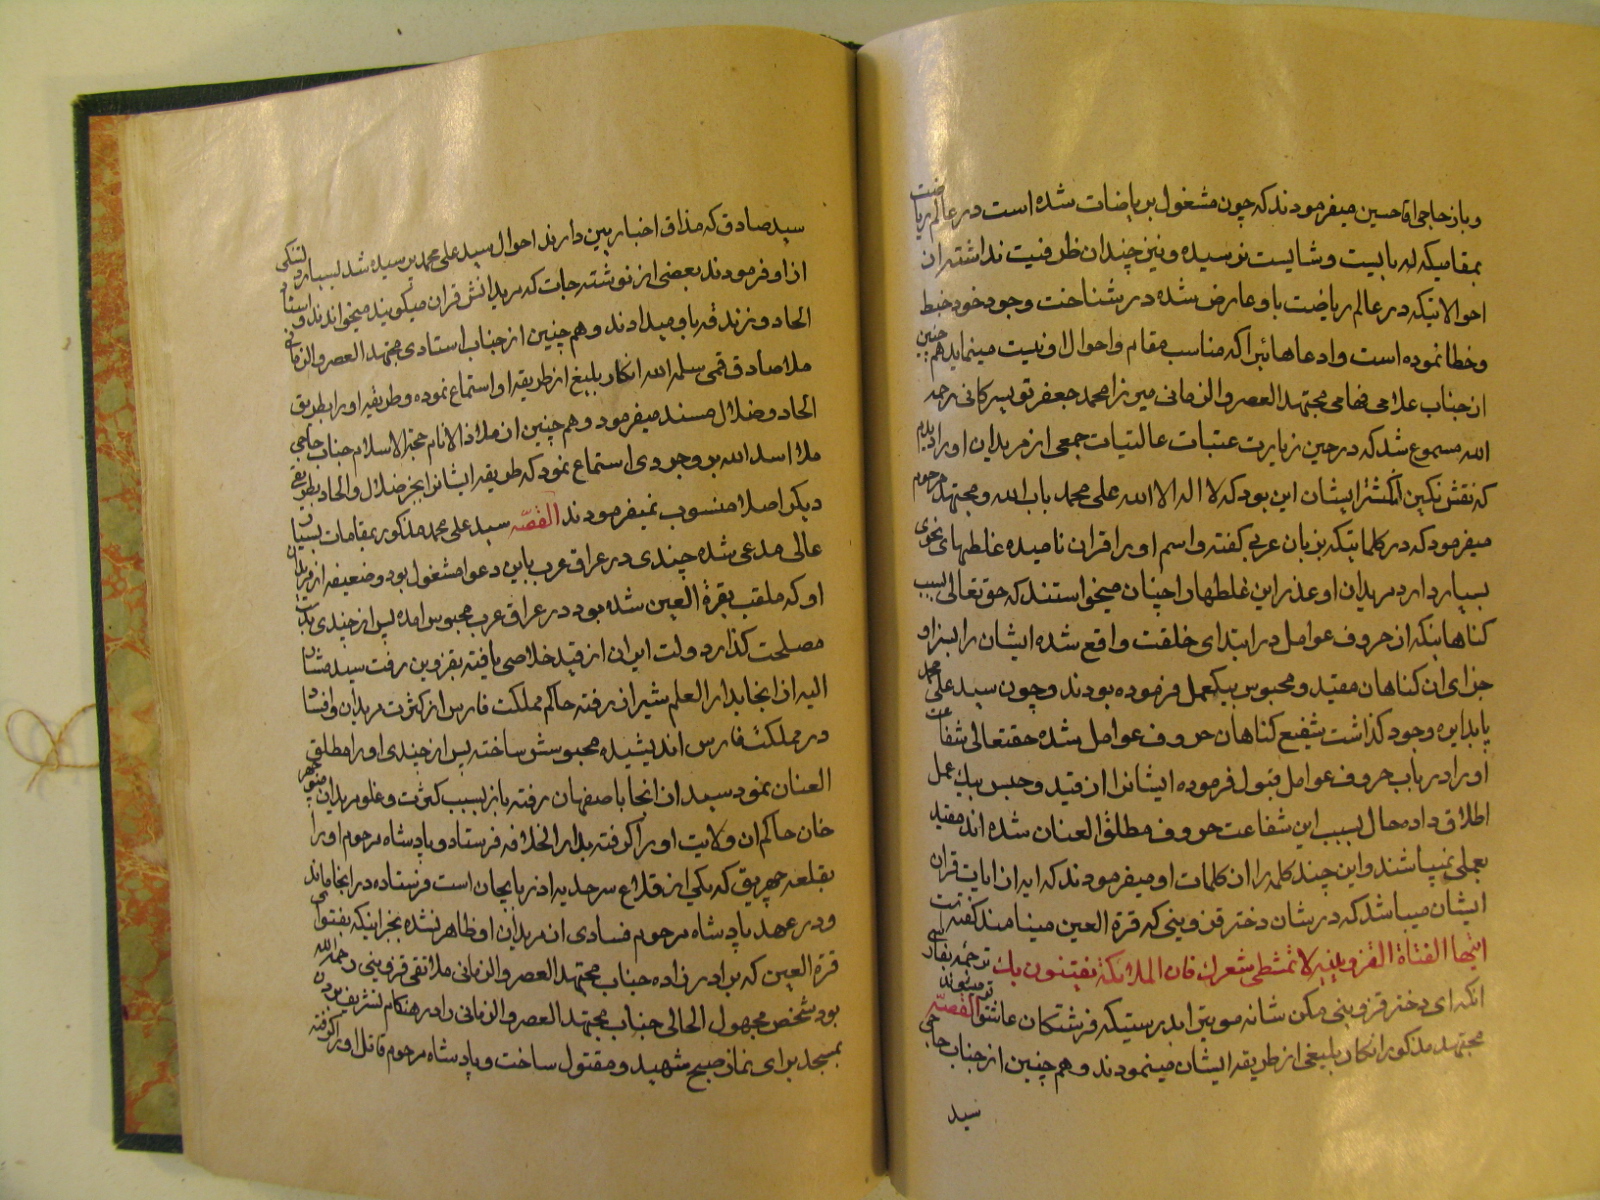 و باز حاجی اقا حسین میفرمودند که چون مشغول بریاضات شده است در عالم ریاضت
بمقامیکه له بایست و شایست نرسیده و نیز چندان ظرفیت نداشته ان
احوالاتیکه در عالم ریاضت باو عارض شده در شناخت وجود خود خبط
و خطا نموده است و ادعاهائیرا که مناسب مقام و احوال او نیست مینماید هم چنین
از جناب علامی فهامی مجتهد العصر و الزمانی میرزا محمد جعفر تویسرکانی رحمه
الله مسموع شد که در حین زیارت عتبات عالیات جمعی از مریدان او را دیدم
که نقش نکین انکشتر ایشان این بود که لا اله الا الله علی محمد باب الله و مجتهد مرحوم
میفرمود که در کلماتیکه بزبان عربی کفته و اسم او را قران نامیده غلطهای نحوی
بسیار دارد مریدان او عذر این غلطها را چنان میخواستند که حق تعالی بسبب
کناهانیکه از حروف عوامل در ابتدای خلقت واقع شده ایشان را بسزا و
جزای ان کناهان مقید و محبوس بیکعمل فرموده بودند و چون سید علی محمد
پابدایره وجود کذاشت شفیع کناهان حروف عوامل شده حقتعالی شفاعت
او را در باب حروف عوامل قبول فرموده ایشانرا از قید و حبس بیک عمل
اطلاق داد حال بسبب این شفاعت حروف مطلق العنان شده اند مقید
بعملی نمیباشند و این چند کلمه را از کلمات او میفرمودند که ایه از ایات قران
ایشان میباشد که در شان دختر قزوینی که قرة العین مینامند کفته است
ایتها الفتاة القزوینیه لا تمشطی شعرک فان الملائکة یفتنون بک ترجمه بفارسی
انکه ای دختر قزوینی مکن شانه مویت را بدرستیکه فرشتکان عاشق تو میشوند القصه
مجتهد مذکور انکار بلیغی از طریقه ایشان مینمودند و هم چنین از جناب حاجی
سید
سید صادق که مذاق اخباریین دارند احوال سید علی محمد پرسیده شد بسیار دلتنکی
از او فرمودند بعضی از نوشته جات که مریدانش قران میکویند میخواندند و اسناد
الحاد و زندقه باو میدادند و هم چنین از جناب استادی مجتهد العصر و الزمانی
ملا صادق قمی سلمه الله انکار بلیغ از طریقه او استماع نموده و طریقه او را بطریق
الحاد و ضلال مسند میفرمود و هم چنین از ملاذ الانام حجة الاسلام جناب حاجی
ملا اسد الله بروجردی استماع نمود که طریقه ایشانرا بجز ضلال و الحاد بطریقی
دیکر اصلا منسوب نمیفرمودند القصه سید علی محمد مذکور بمقامات بسیار
عالی مدعی شده چندی در عراق عرب باین دعوا مشغول بود و ضعیفه از مریدان
او که ملقب بقرة العین شده بود در عراق عرب محبوس امده پس از چندی
مصلحت کذار دولت ایران از قید خلاصی یافته بقزوین رفت سید مشار
الیه از انجا بدار العلم شیراز رفته حاکم مملکت فارس از کثرت مریدان و افساد
در مملکت فارس اندیشیده محبوسش ساخته پس از چندی او را مطلق
العنان نمود سید از انجا باصفهان رفته باز بسبب کثرت و غلو مریدان منوچهر
خان حاکم ان ولایت او را کرفته بدار الخلافه فرستاد و پادشاه مرحوم او را
بقلعه چهریق که یکی از قلاع سرحدیه اذربایجان است فرستاده در انجا ماند
و در عهد پادشاه مرحوم فسادی از مریدان او ظاهر نشده بجز اینکه بفتوای
قرة العین که برادر زاده جناب مجتهد العصر و الزمانی ملا تقی قزوینی رحمه الله
بود شخص مجهول الحالی جناب مجتهد العصر و الزمانی را در هنکام تشریف بردن
بمسجد برای نماز صبح شهید و مقتول ساخت و پادشاه مرحوم قاتل او را کرفته